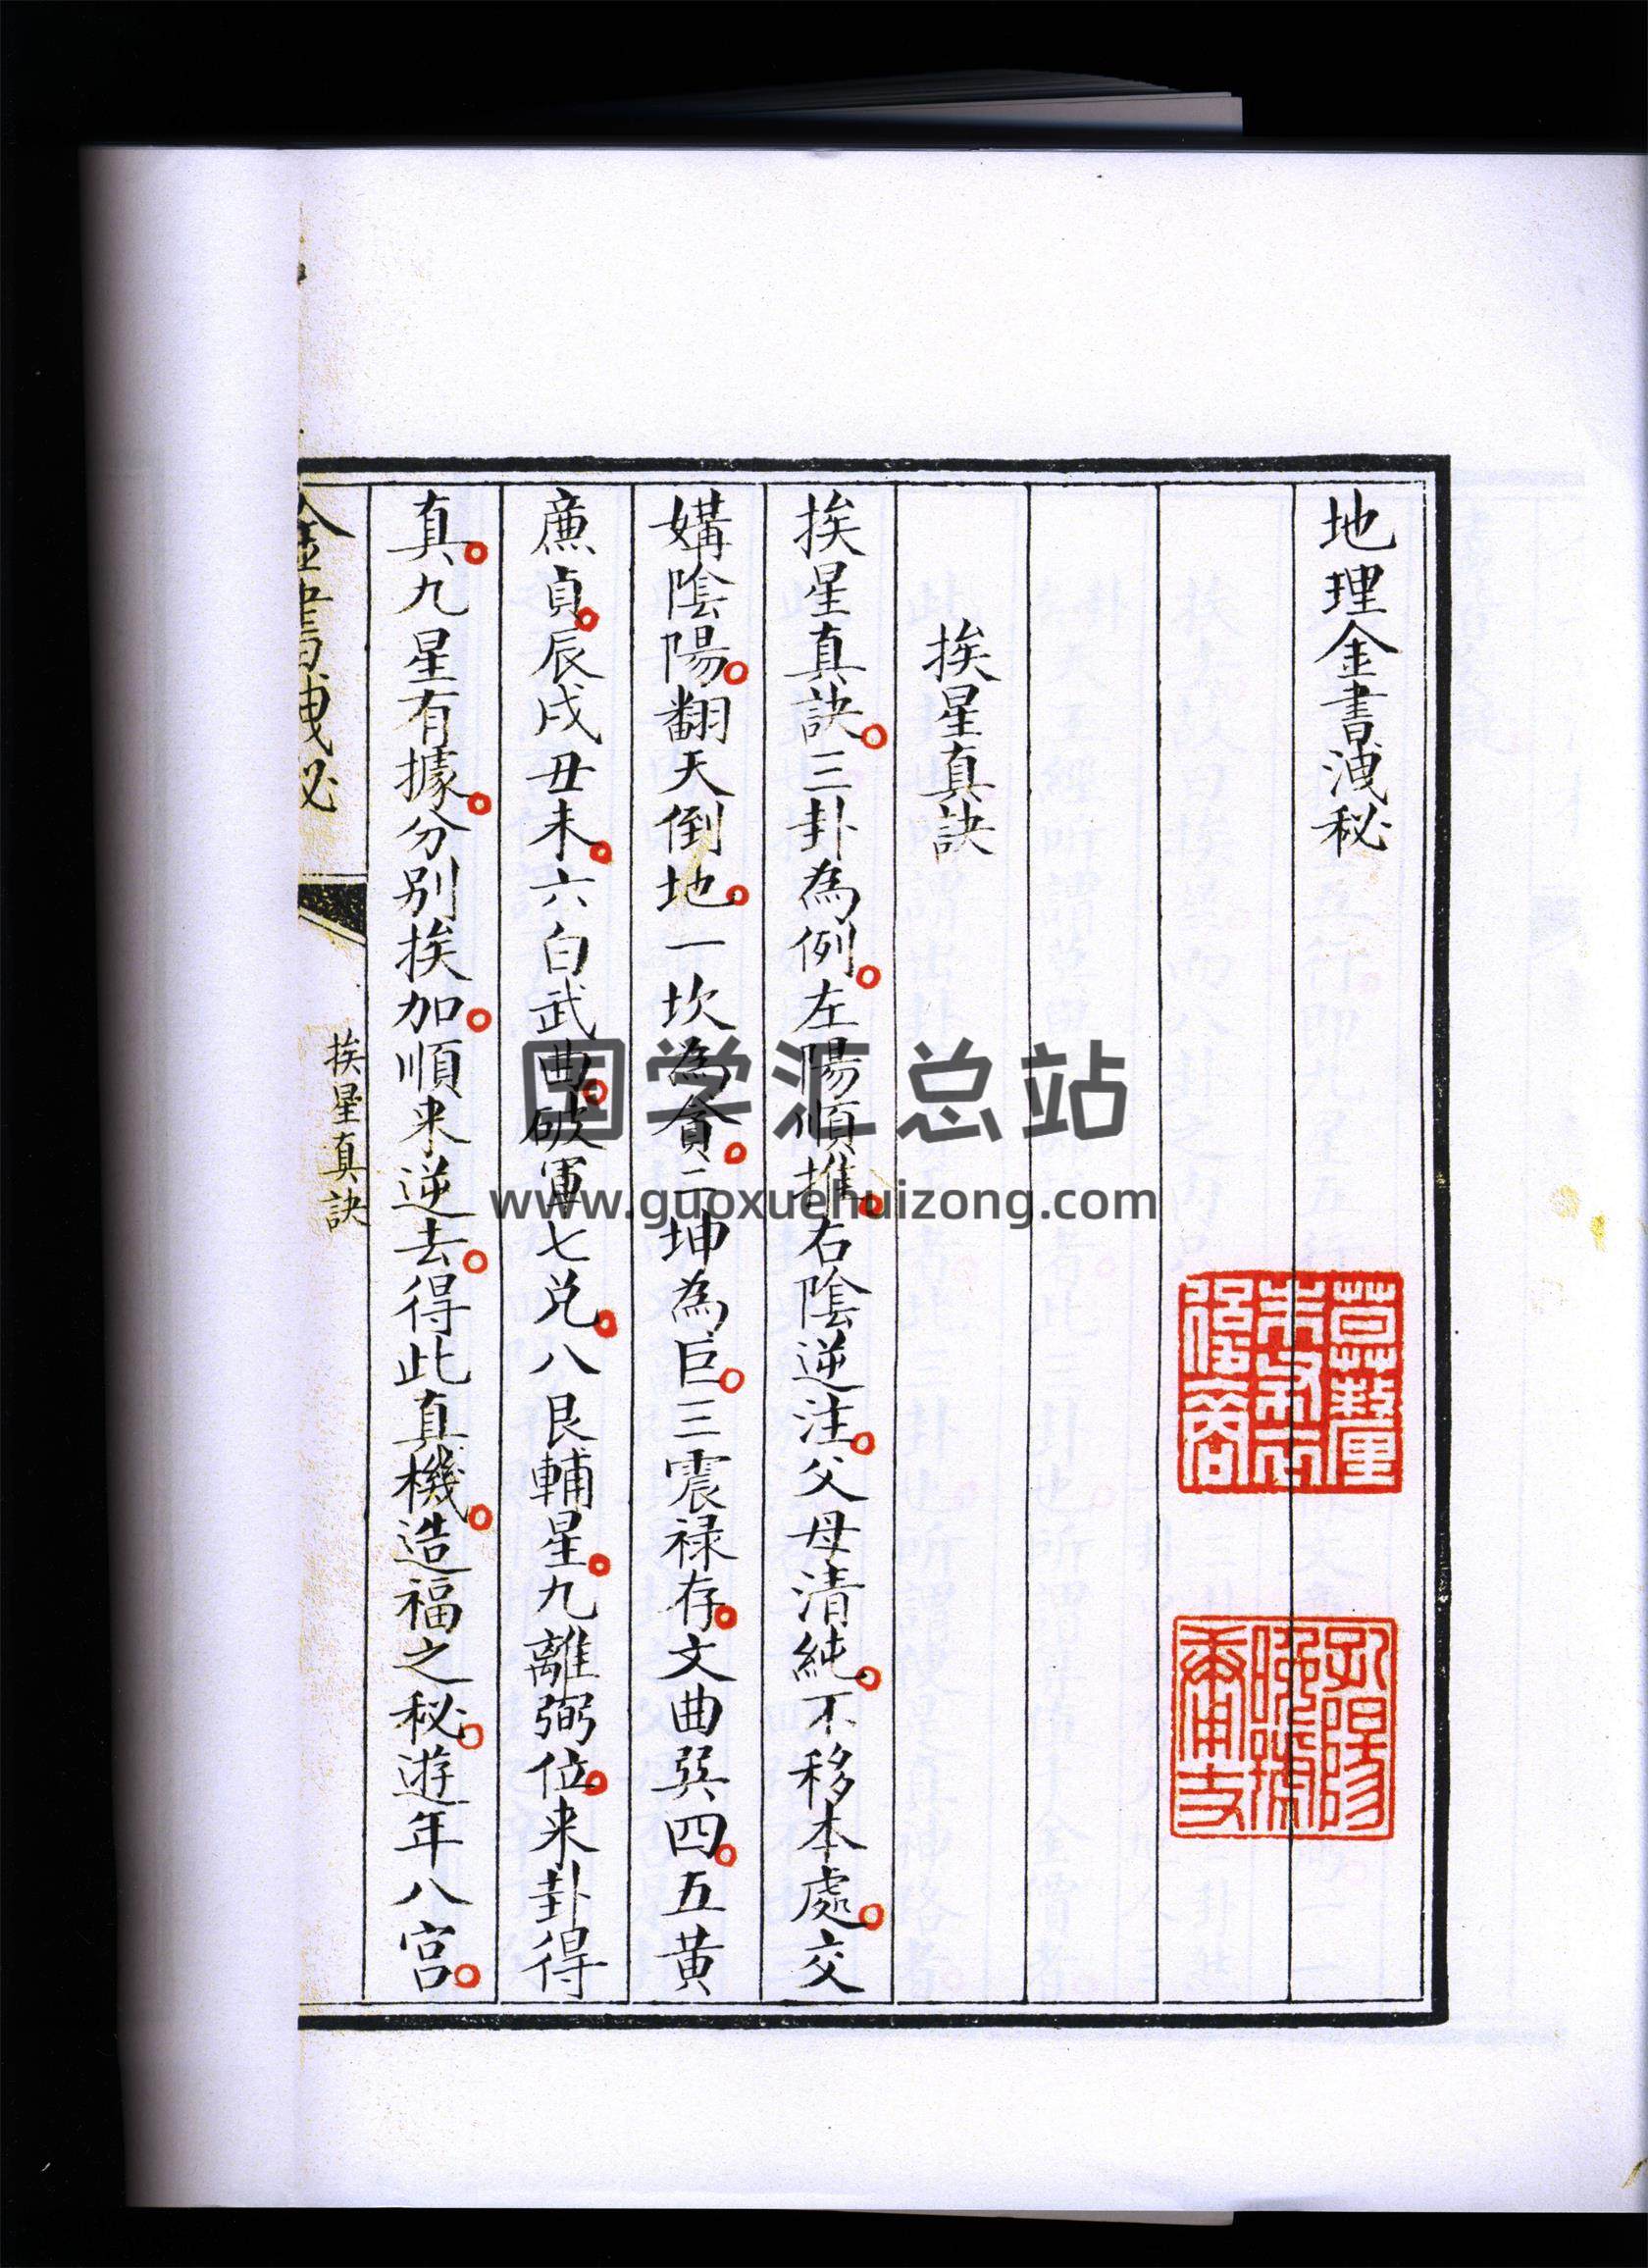 地理金書洩秘
挨星真訣
挨星真訣。三卦為例。左陽順推。右陰逆注。父母清純。不移本處。交
媾陰陽。翻天倒地。一坎為貪。二坤為巨。三震禄存。文曲巽四。五黃
廉貞。辰戌丑未。六白武曲。破軍七兌。八艮輔星。九離弼位。来卦得
真。九星有據。分別挨加。順来逆去。得此真機。造福之秘。遊年八宮。
金書洩秘
挨星真訣
国学汇总站
www.guoxuehuizong.com